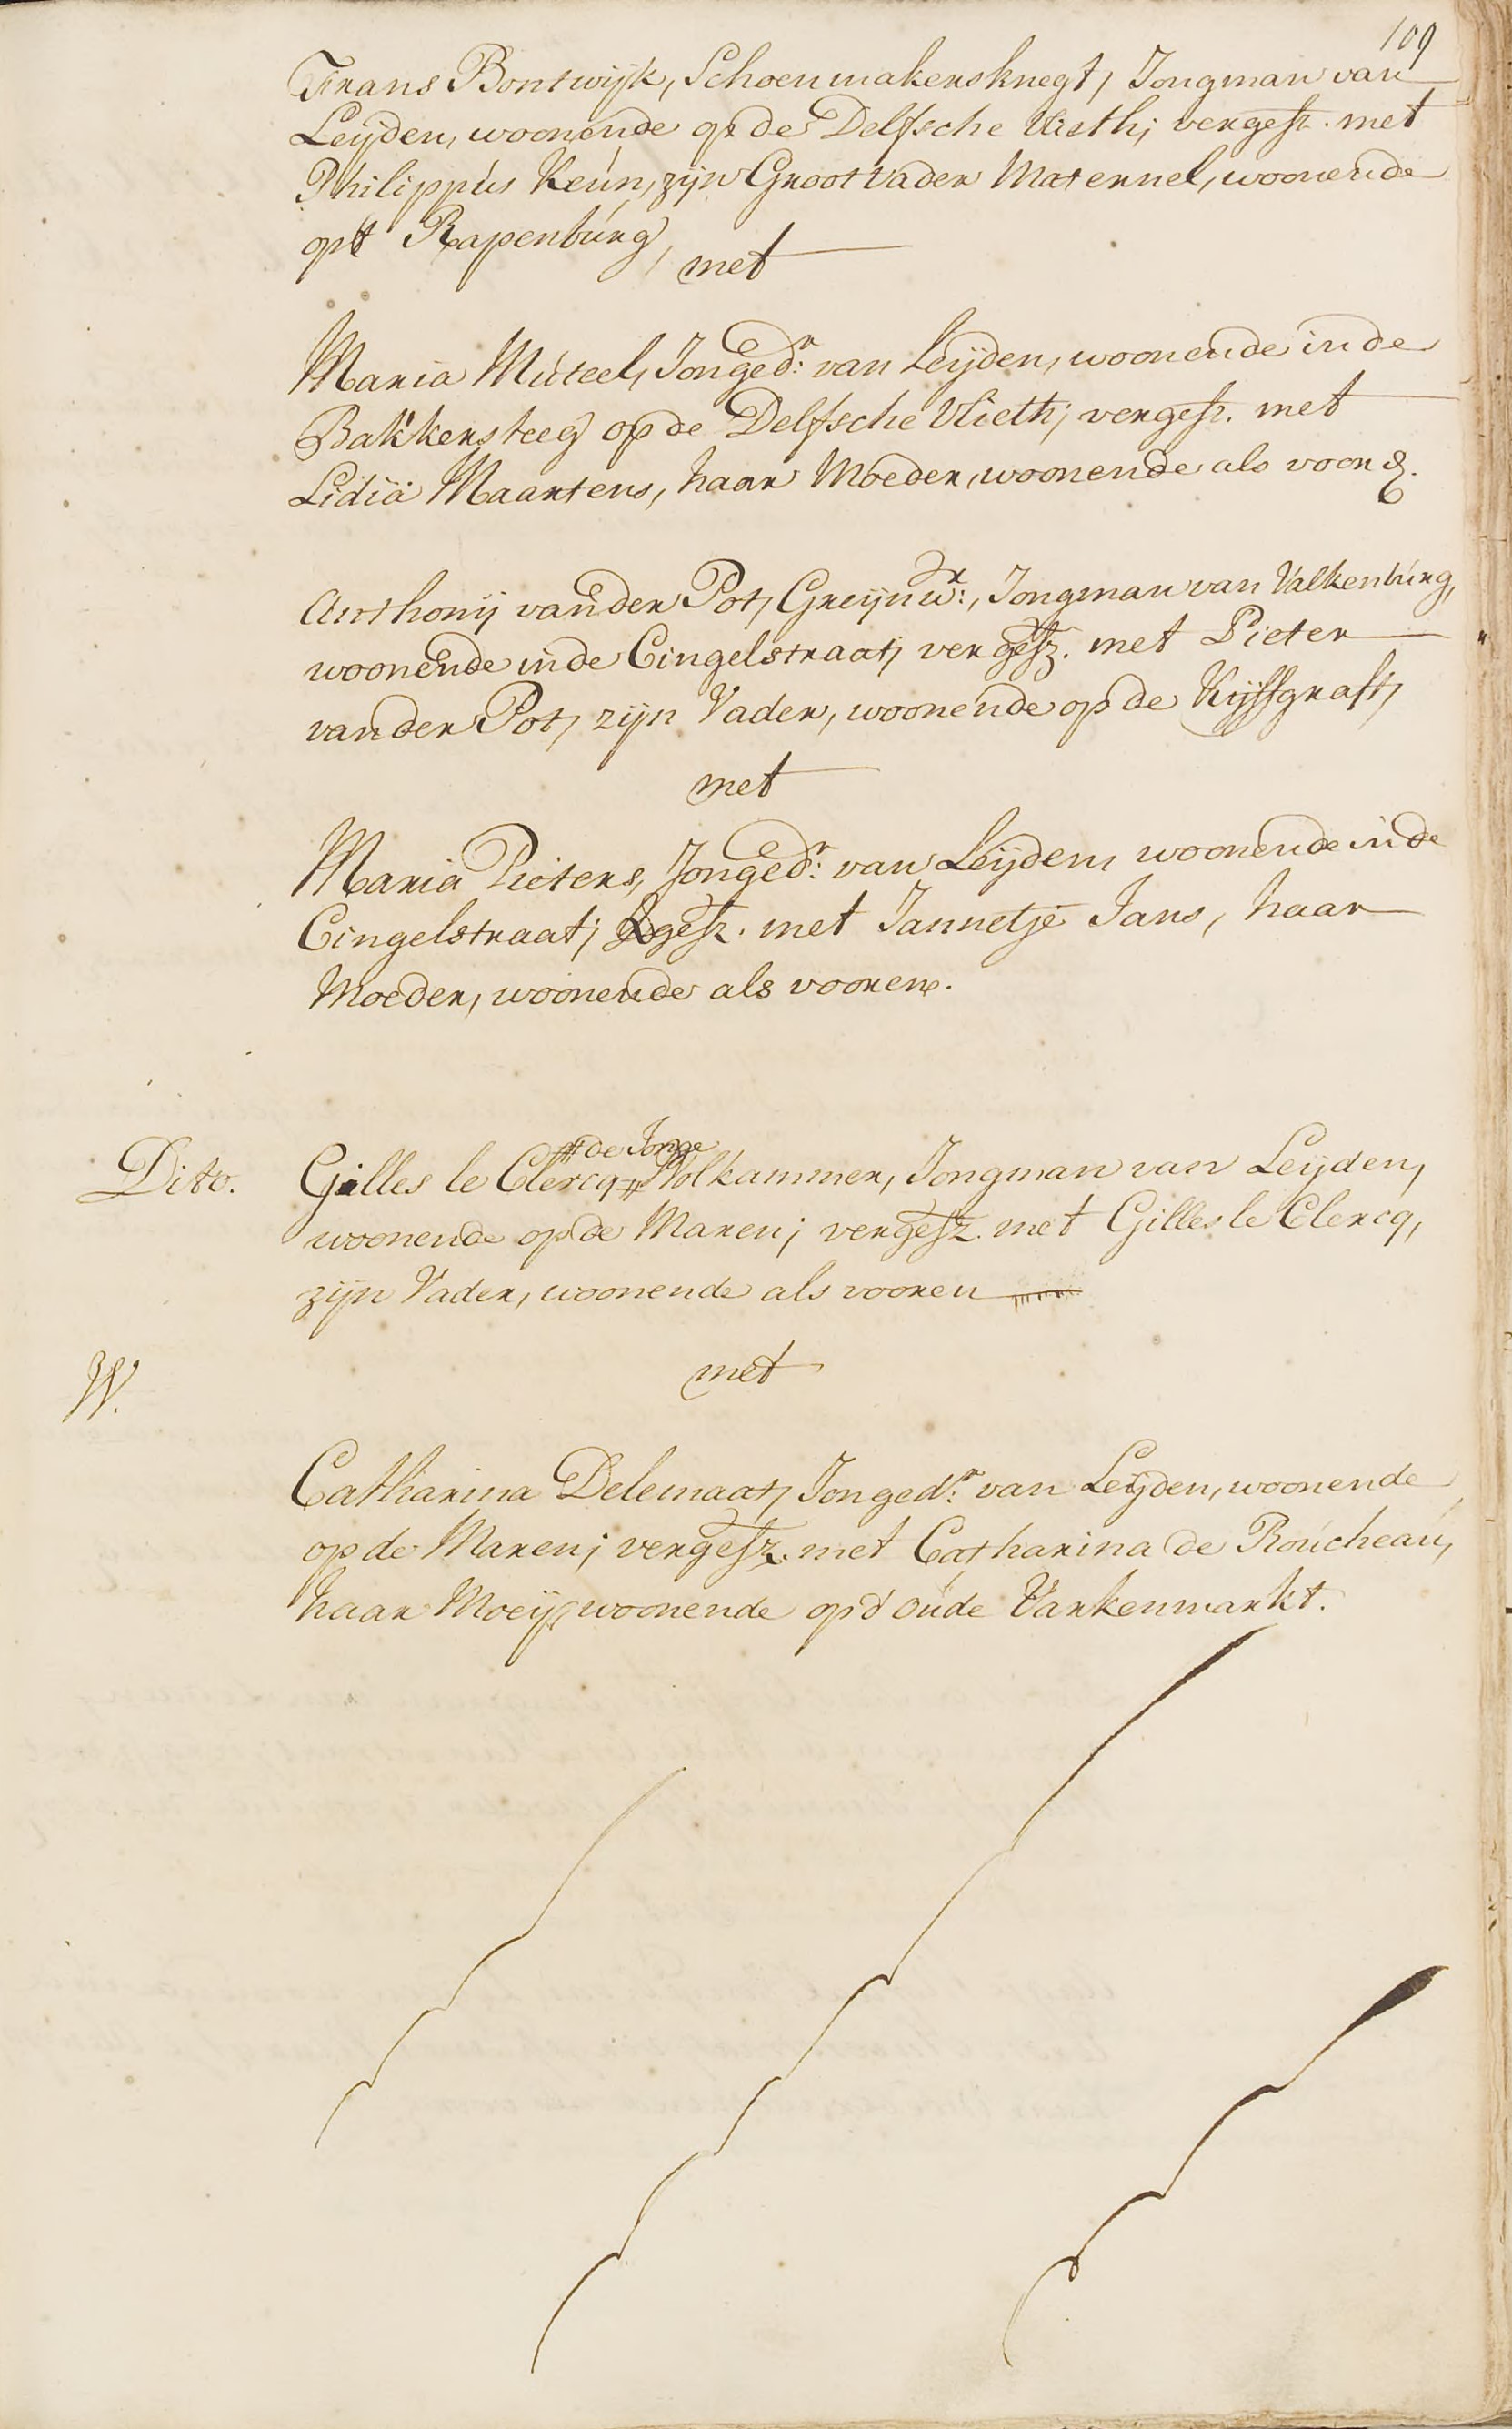 109
Frans Bontwijk, Schoenmakersknegt, Jongman van
Leijden, woonende op de Delfsche Vlieth; vergesz. met
Philippús Keún, zijn Grootvader Maternel, woonende
opt Rapenbúrg,
met
Maria Múteel, Jonged.r van Leijden, woonende in de
Bakkersteeg op de Delfsche Vlieth; vergesz. met
Lidia Maartens, haar Moeder, woonende als voor
Anthonij vander Pot, Greijnw.r, Jongman van Valkenbúrg,
woonende inde Cingelstraat, vergesz. met Pieter
vander Pot, zijn Vader, woonende op de Kijfgraft,
met
Maria Pieters, Jonged.r van Leijden, woonende in de
Cingelstraat; gesz. met Jannetje Jans, haar
Moeder, woonende als vooren.
Dito.
# de Jonge
Gilles le Clercq # Wolkammer, Jongman van Leijden,
woonende op de Maren; vergesz. met Gilles le Clercq,
zijn Vader, woonende als vooren
W.
met
Catharina Delemaat, Jonged.r van Leijden, woonende
op de Maren; vergesz. met Catharina de Roúcheaú,
haar Moeij, woonende op d' oúde Varkenmarkt.